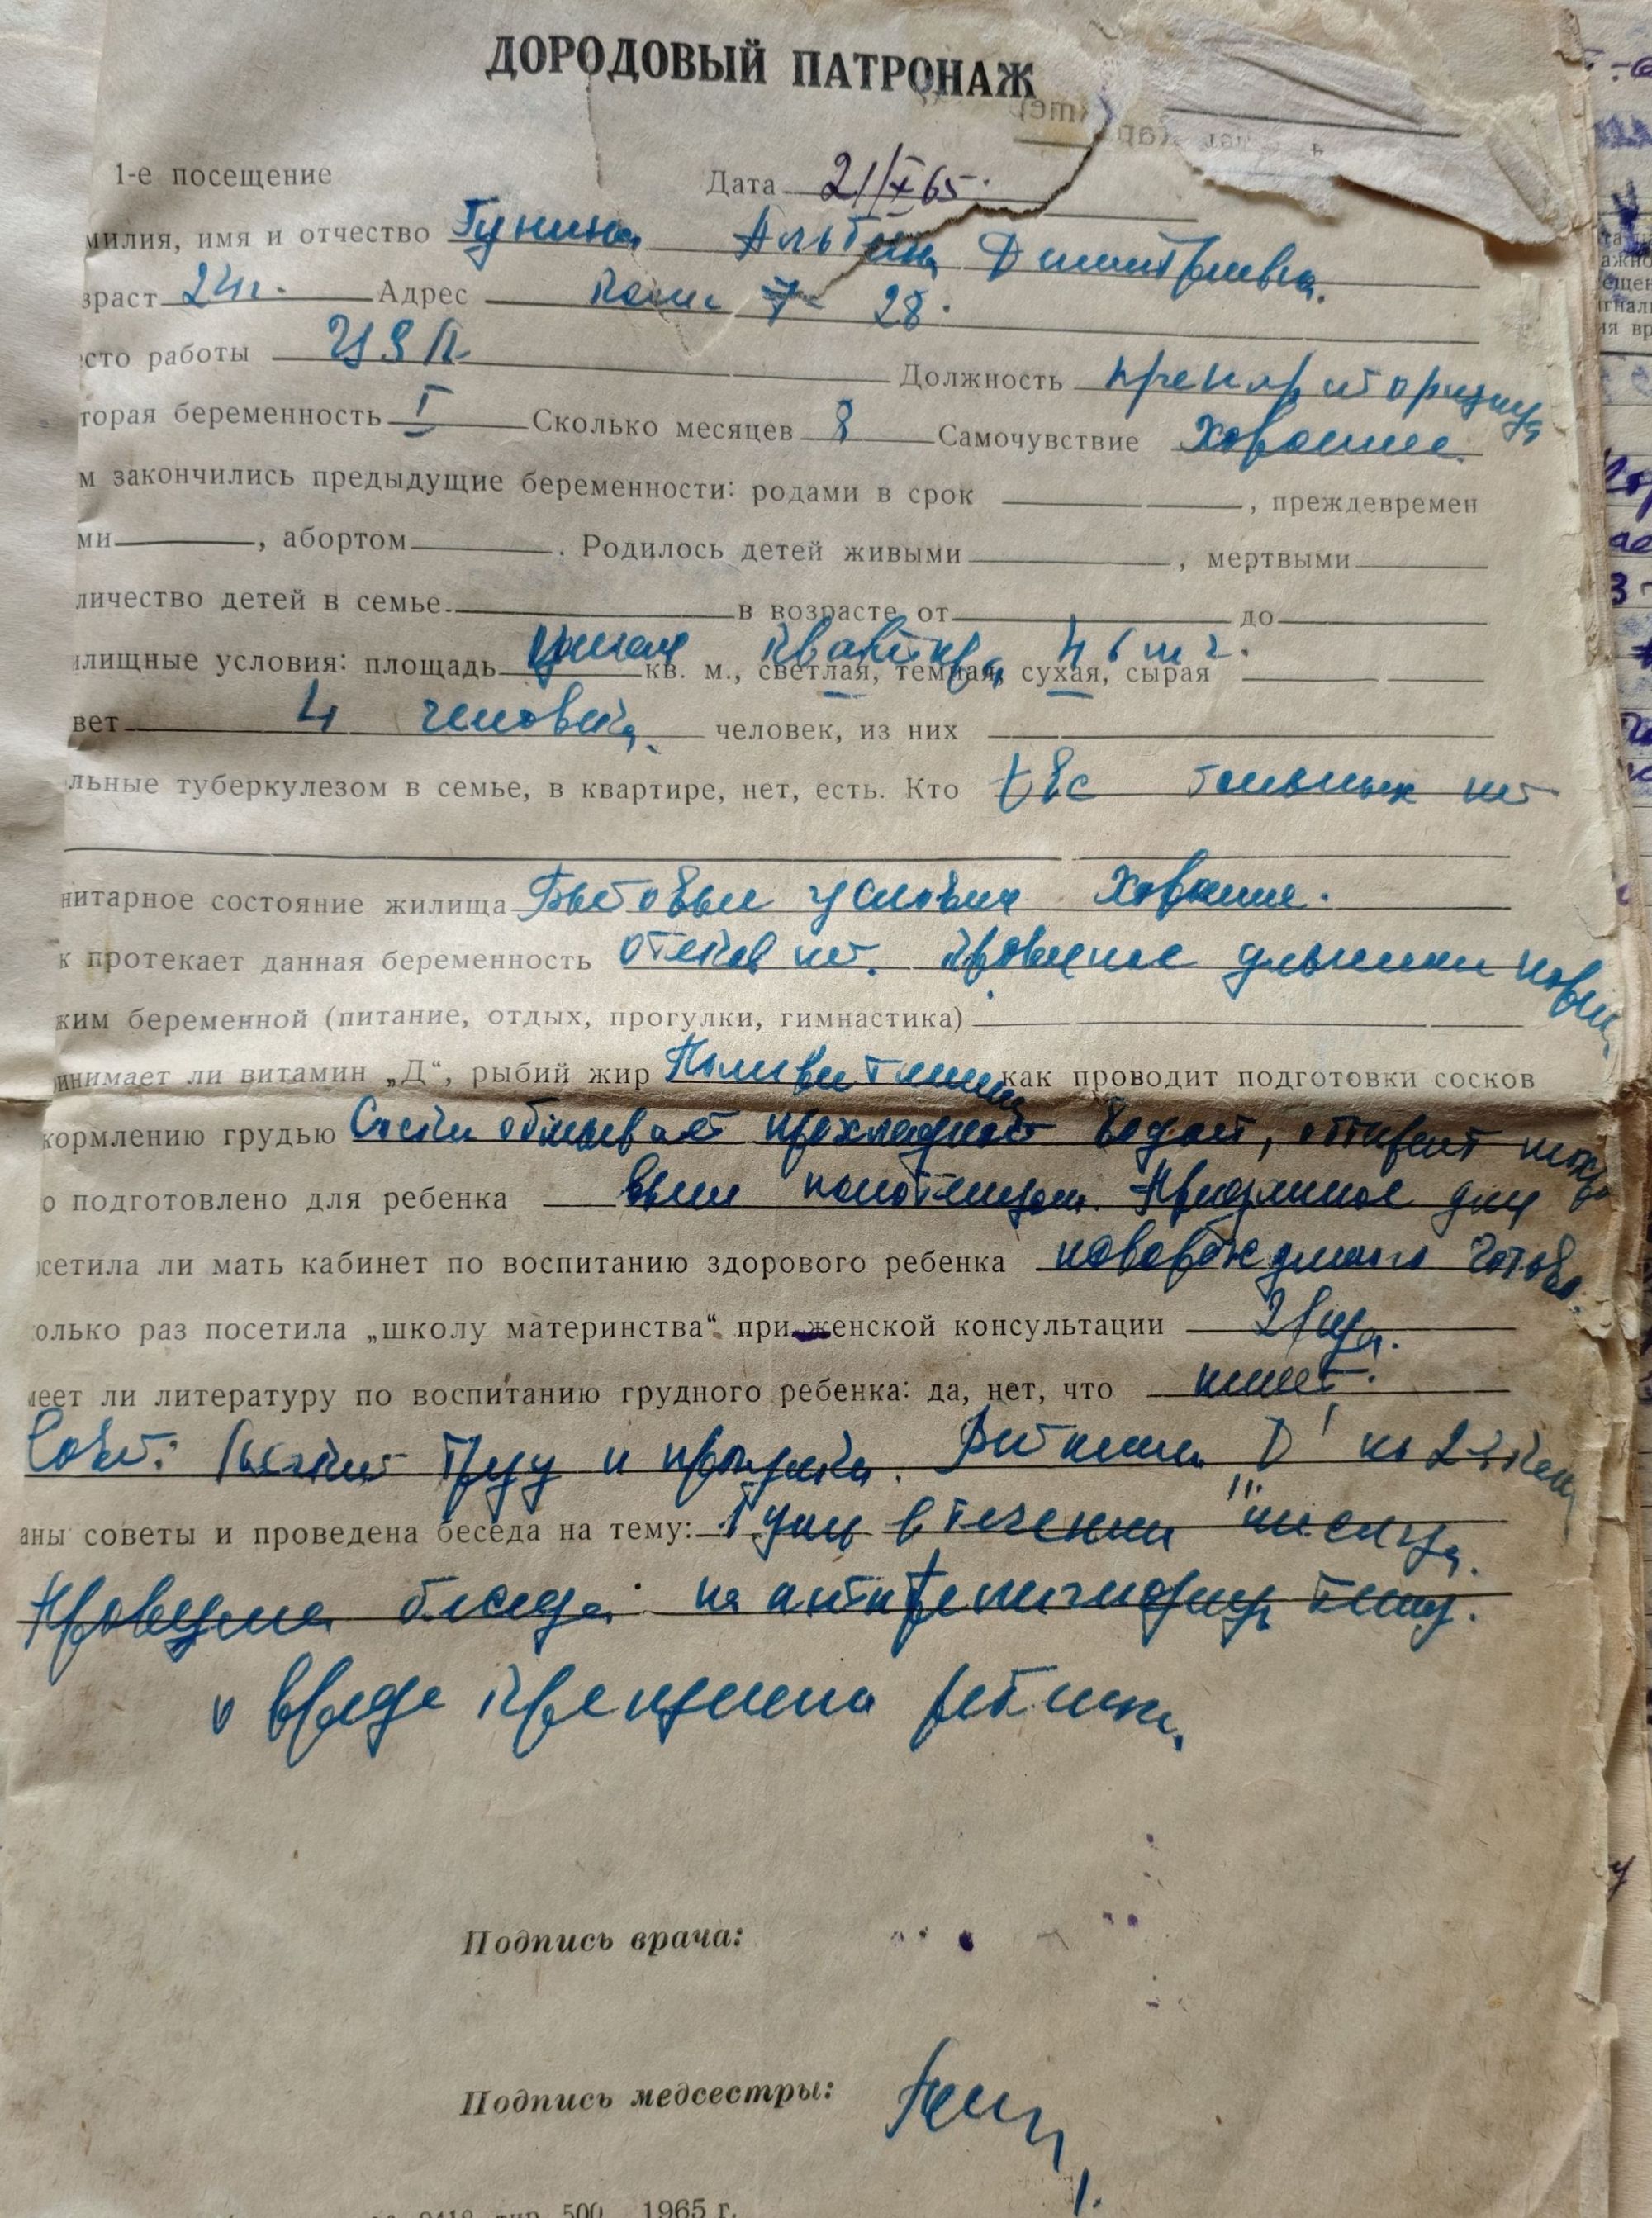 ДОРОДОВЫЙ ПАТРОНАЖ
1-е посещение Дата 21/X 65.
милия, имя и отчество Гунина Альбина Дмитриевна.
зраст 24г. Адрес 28.
сто работы ЦЗЛ Должность препараторщица
торая беременность I Сколько месяцев 8 Самочувствие Хорошее.
м закончились предыдущие беременности: родами в срок , преждевремен
ми , абортом . Родилось детей живыми , мертвыми
личество детей в семье в возрасте от до
илищные условия: площадь квартира 46 м2. кв. м., светлая, темная, сухая, сырая
вет 4 человека. человек, из них
льные туберкулезом в семье, в квартире, нет, есть. Кто больных нет
нитарное состояние жилища Бытовые условия хорошие.
к протекает данная беременность отеков нет. Кровяное давление норм
жим беременной (питание, отдых, прогулки, гимнастика)
инимает ли витамин „Д“, рыбий жир Поливитамины как проводит подготовки сосков
кормлению грудью Соски обмывает прохладной водой, обтирает махро
о подготовлено для ребенка вым полотенцем. Приданное для
осетила ли мать кабинет по воспитанию здорового ребенка новорожденного готово.
олько раз посетила „школу материнства“ при женской консультации 2 раза.
меет ли литературу по воспитанию грудного ребенка: да, нет, что имеет.
Совет: груди и прогулки. Витамин D по 2
аны советы и проведена беседа на тему: в течении месяца.
Проведена беседа на антирелигиозную тему.
о вреде крещения ребенка.
Подпись врача:
Подпись медсестры:
500 1965 г.